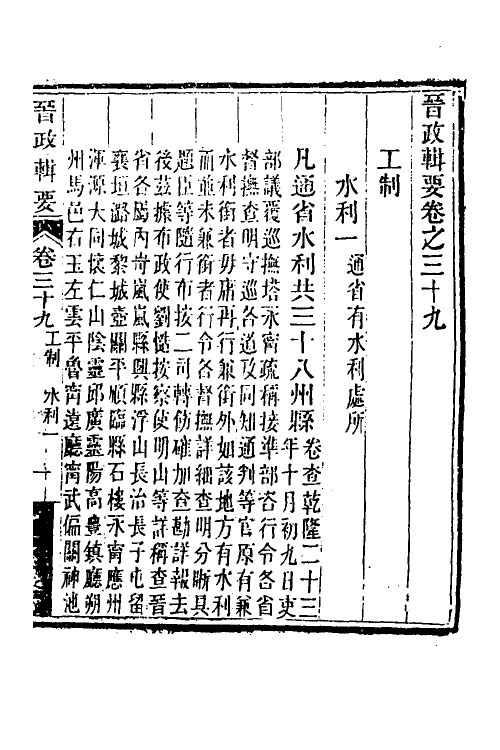 晉政輯要卷之三十九
工制
水利一 通省有水利處所
凡通省水利共三十八州縣 卷查乾隆二十三
年十月初九日吏
部議覆巡撫塔永甯疏稱接準部咨行令各省
督撫查明守巡各道及同知通判等官原有兼
水利銜者毋庸再行兼銜外如該地方有水利
而並未兼銜者行令各督撫詳細查明分晰具
題臣等隨行布按二司轉飭確加查勘詳報去
後茲據布政使劉慥按察使明山等詳稱查晉
省各屬內岢嵐嵐縣興縣浮山長治長子屯留
襄垣潞城黎城壺關平順臨縣石樓永甯應州
渾源大同懷仁山陰靈邱廣靈陽高豐鎮廳朔
州馬邑右玉左雲平魯甯遠廳甯武偏關神池
晉政輯要 卷三十九工制 水利一 一